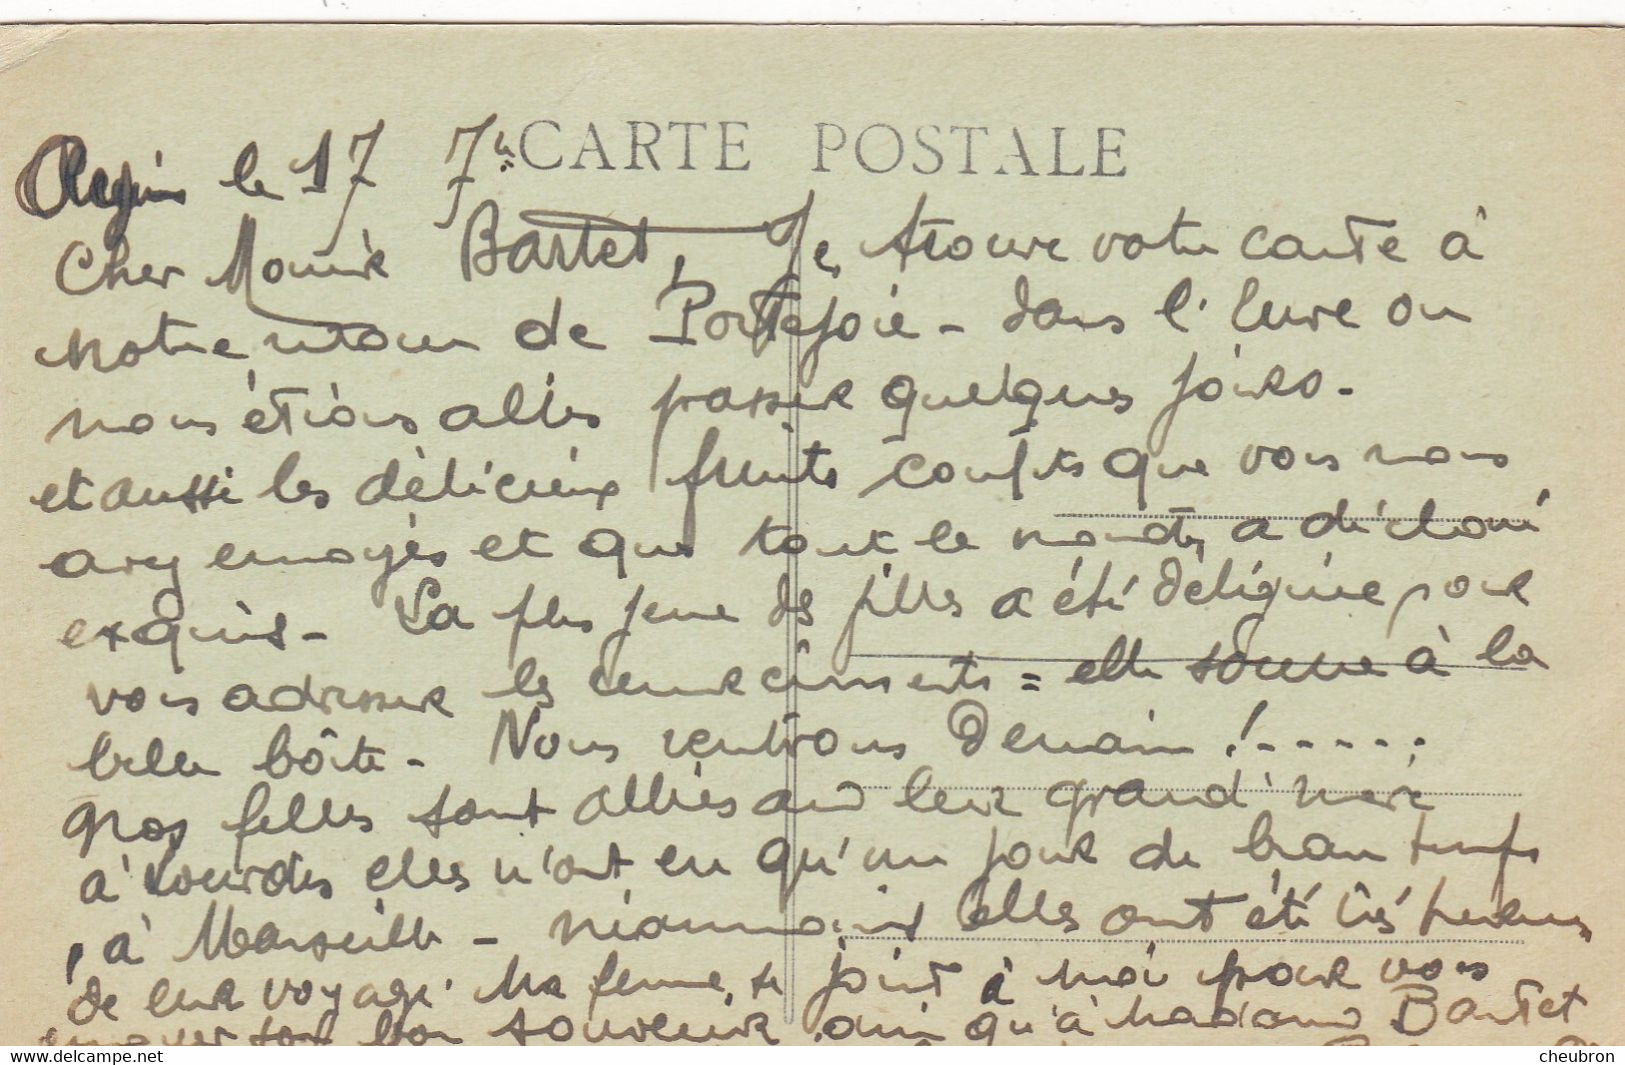 le 17 7bre CARTE POSTALE
Cher Monsieur Bartet, Je trouve votre carte à
notre retour de Portejoie - dans l'Eure ou
nous étions allés passer quelques jours -
et aussi les délicieux fruits confits que vous nous
avez envoyés et que tout le monde a déclaré
exquis - La plus jeune des filles a été désignée pour
vous adresser les remerciements = elle songe à la
belle boîte - Nous rentrons Demain !......
Nos filles sont allées avec leur grand'mère
à Lourdes elles n'ont eu qu'un jour de beau temps
, à Marseille - néanmoins elles ont été très heureuses
de leur voyage. Ma femme se joint à moi pour vous
envoyer son bon souvenir ainsi qu'à Madame Bartet
www.delcampe.net
cheubron